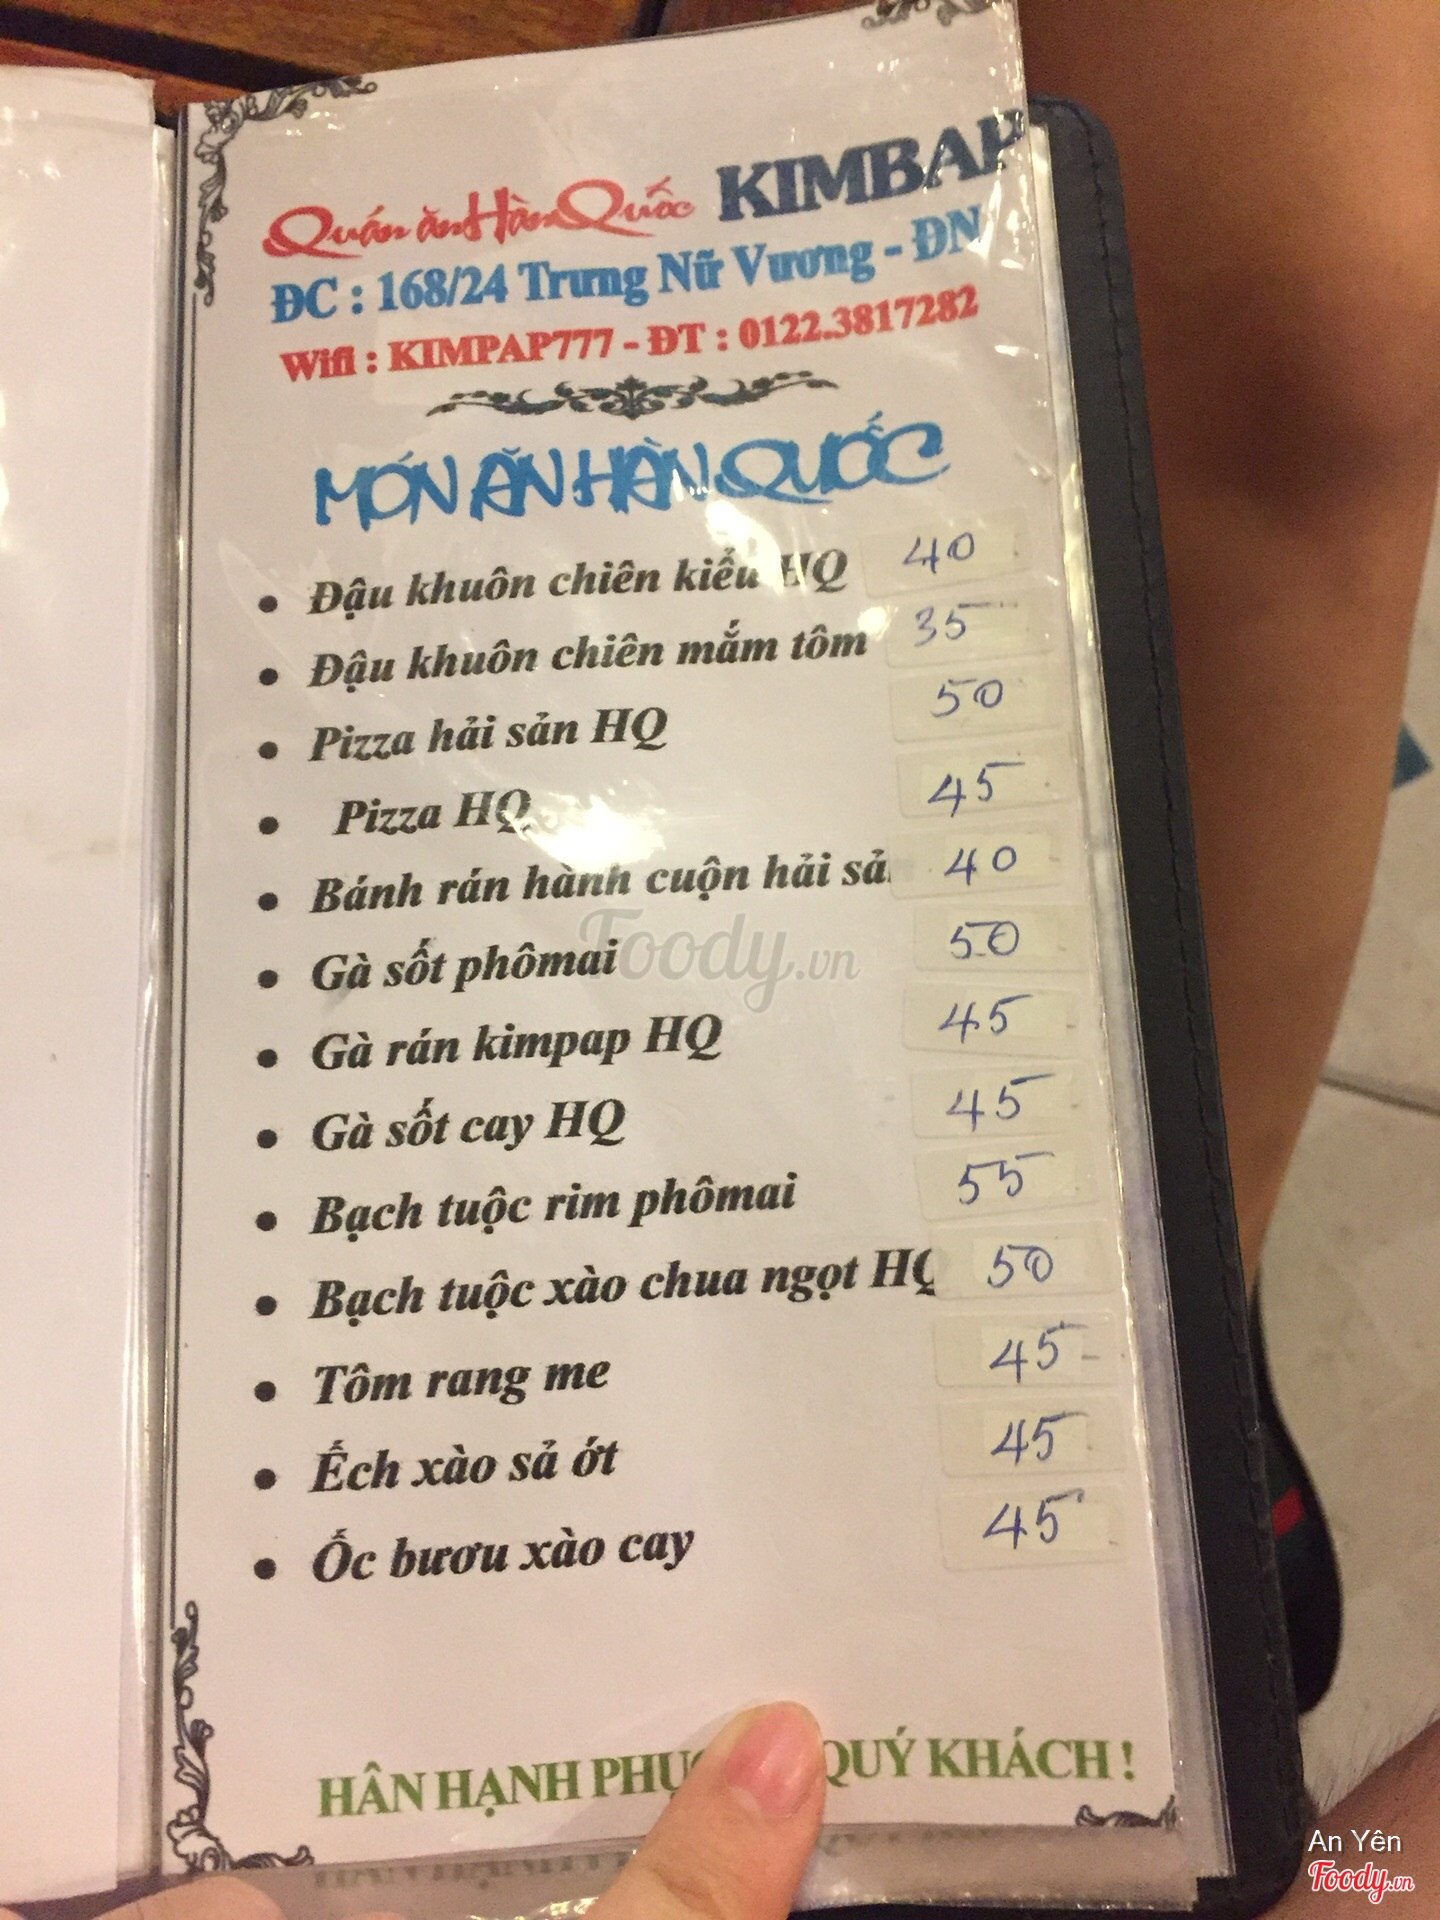 Quán ăn Hàn Quốc KIMBAP
ĐC : 168/24 Trưng Nữ Vương - ĐN
Wifi : KIMPAP777 - ĐT : 0122.3817282
MÓN ĂN HÀN QUỐC
• Đậu khuôn chiên kiểu HQ 40
• Đậu khuôn chiên mắm tôm 35
• Pizza hải sản HQ 50
• Pizza HQ 45
• Bánh rán hành cuộn hải sản 40
• Gà sốt phômai 50
• Gà rán kimpap HQ 45
• Gà sốt cay HQ 45
• Bạch tuộc rim phômai 55
• Bạch tuộc xào chua ngọt HQ 50
• Tôm rang me 45
• Ếch xào sả ớt 45
• Ốc bươu xào cay 45
HÂN HẠNH QUÝ KHÁCH !
Foody.vn
An Yên
Foody.vn